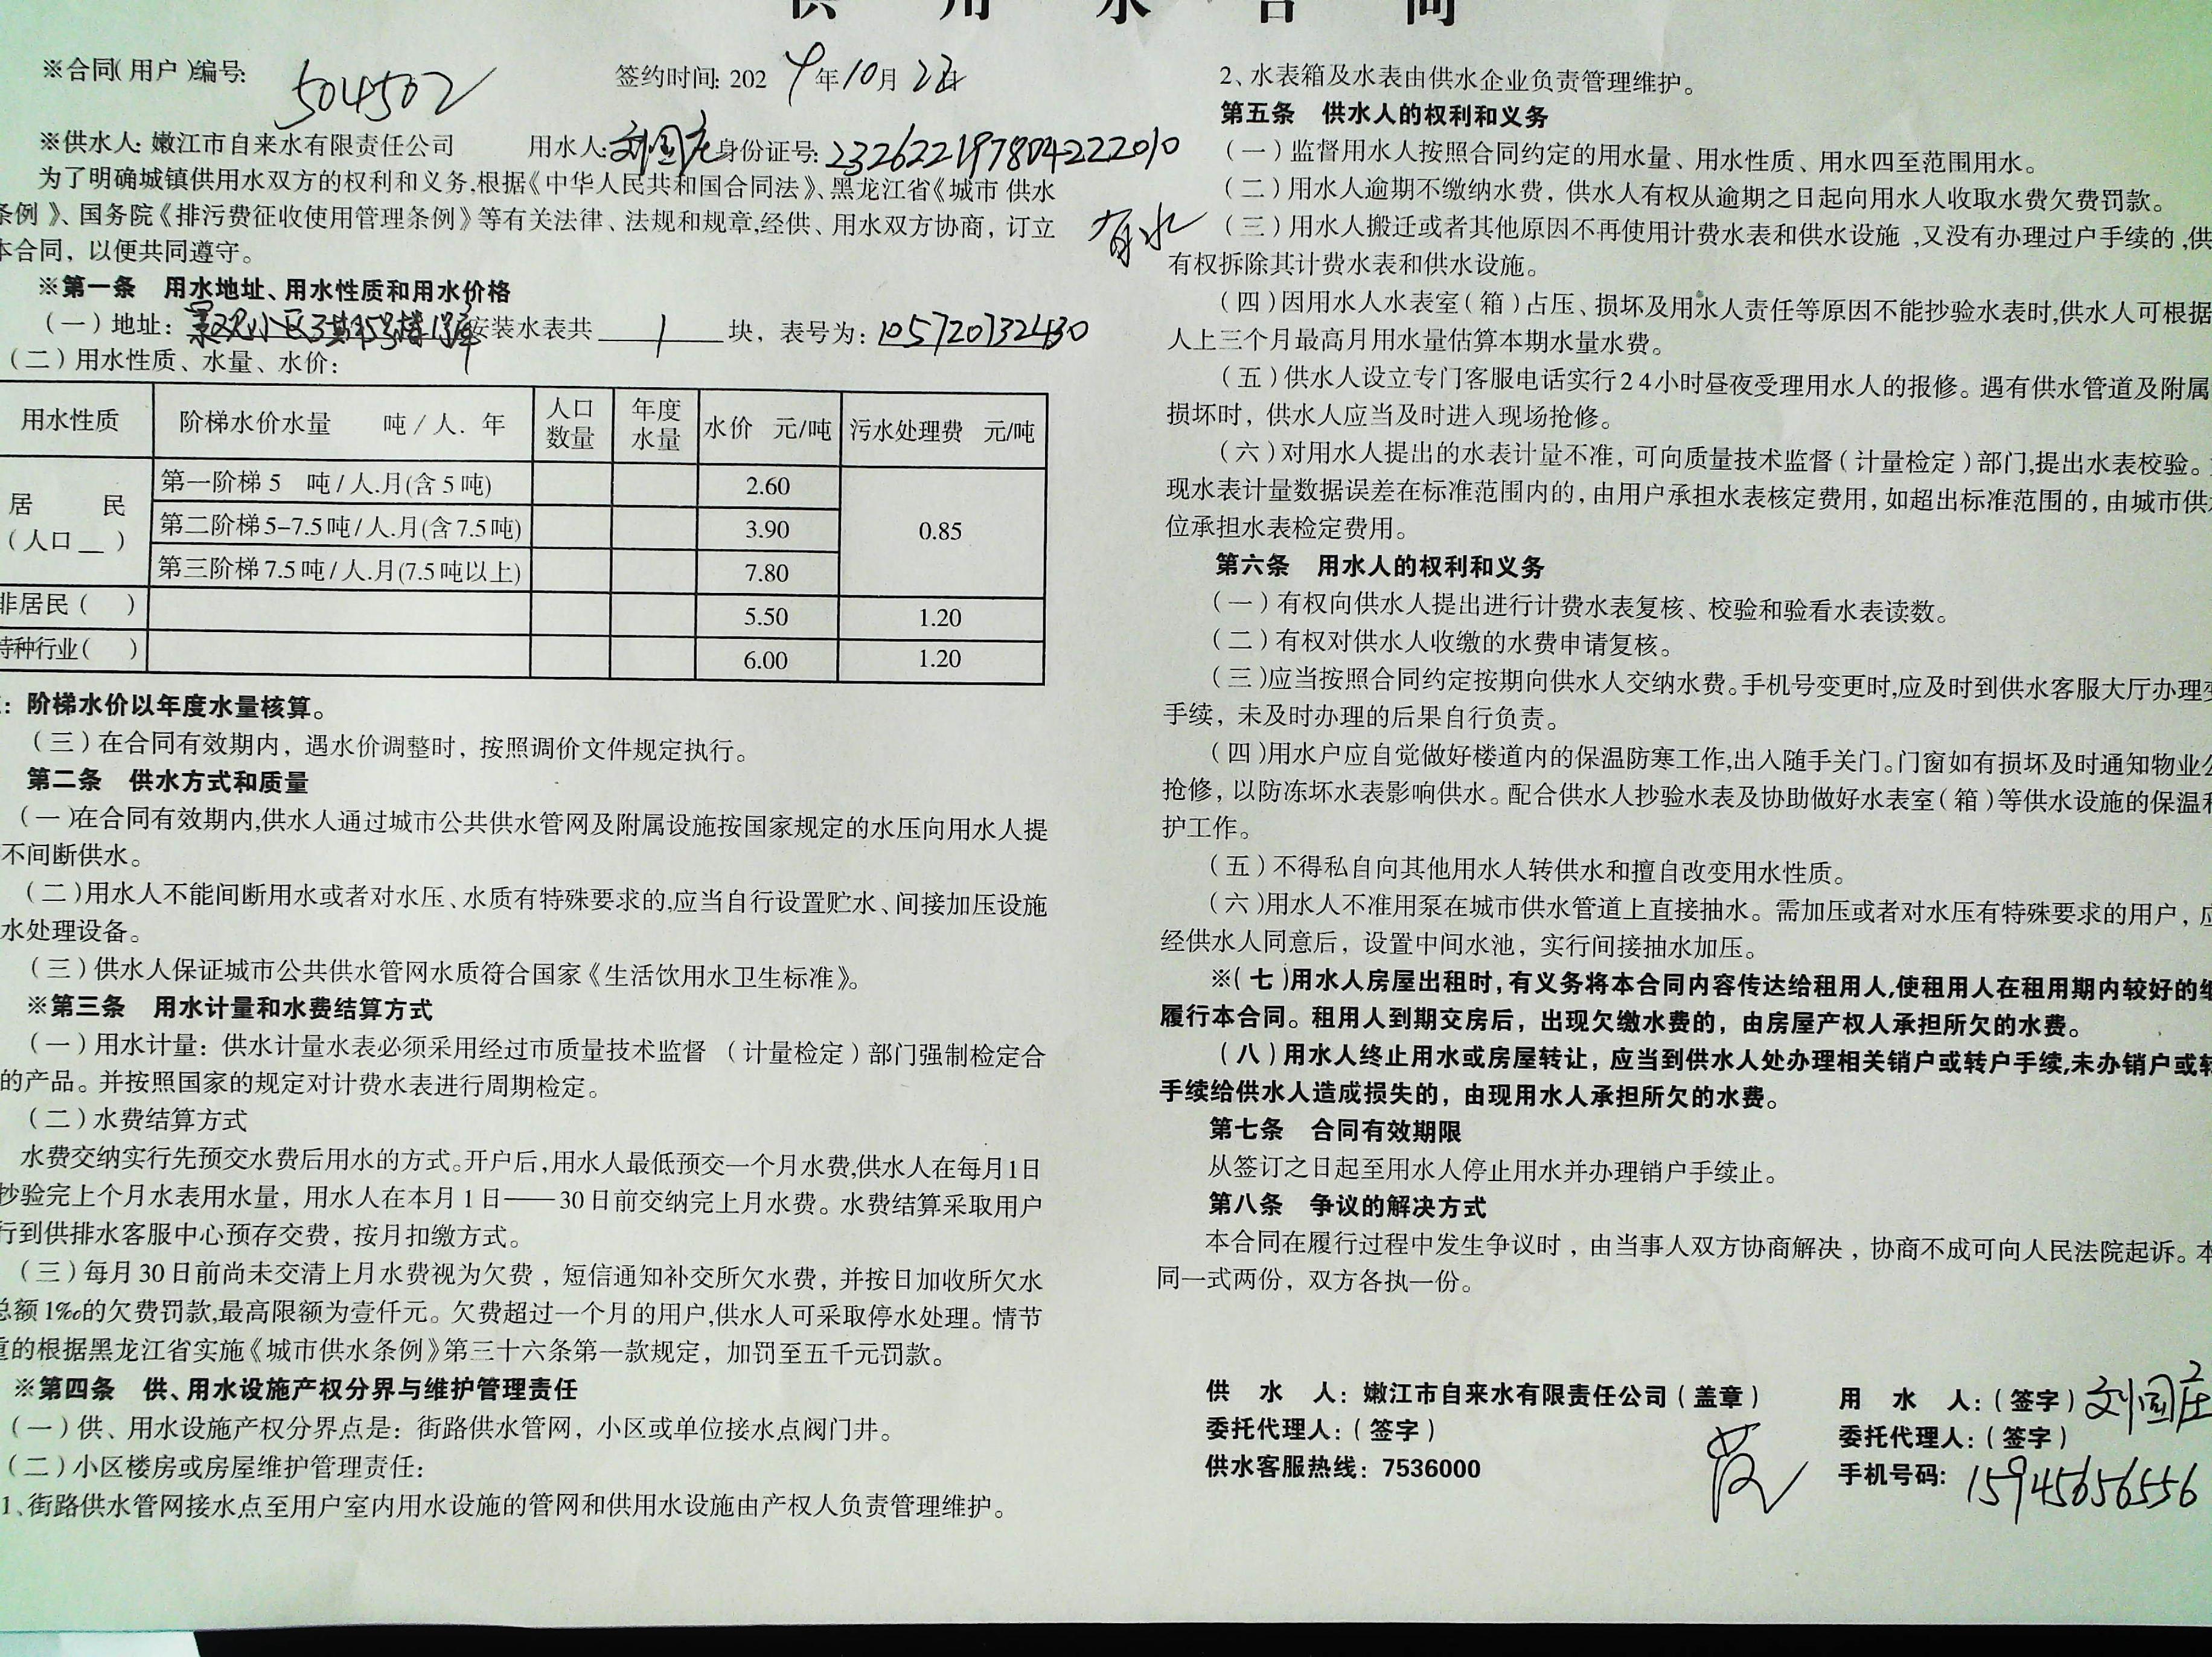 供 用 水 合 同
※合同(用户)编号: 504502 签约时间: 2024年10月22日
※供水人: 嫩江市自来水有限责任公司 用水人: 刘国庄 身份证号: 232622197804222010
为了明确城镇供用水双方的权利和义务,根据《中华人民共和国合同法》、黑龙江省《城市供水
条例》、国务院《排污费征收使用管理条例》等有关法律、法规和规章,经供、用水双方协商，订立
本合同，以便共同遵守。
※第一条 用水地址、用水性质和用水价格
(一)地址: 景观小区3期 安装水表共 1 块，表号为: 105720732430
(二)用水性质、水量、水价:
用水性质 阶梯水价水量 吨/人．年 人口数量 年度水量 水价 元/吨 污水处理费 元/吨
居 民
(人口__)
第一阶梯5 吨/人.月(含5吨) 2.60 0.85
第二阶梯5-7.5吨/人.月(含7.5吨) 3.90
第三阶梯7.5吨/人.月(7.5吨以上) 7.80
非居民( ) 5.50 1.20
特种行业( ) 6.00 1.20
：阶梯水价以年度水量核算。
(三)在合同有效期内，遇水价调整时，按照调价文件规定执行。
第二条 供水方式和质量
(一)在合同有效期内,供水人通过城市公共供水管网及附属设施按国家规定的水压向用水人提
不间断供水。
(二)用水人不能间断用水或者对水压、水质有特殊要求的,应当自行设置贮水、间接加压设施
水处理设备。
(三)供水人保证城市公共供水管网水质符合国家《生活饮用水卫生标准》。
※第三条 用水计量和水费结算方式
(一)用水计量：供水计量水表必须采用经过市质量技术监督 (计量检定)部门强制检定合
的产品。并按照国家的规定对计费水表进行周期检定。
(二)水费结算方式
水费交纳实行先预交水费后用水的方式。开户后,用水人最低预交一个月水费,供水人在每月1日
抄验完上个月水表用水量，用水人在本月1日——30日前交纳完上月水费。水费结算采取用户
行到供排水客服中心预存交费，按月扣缴方式。
(三)每月30日前尚未交清上月水费视为欠费，短信通知补交所欠水费，并按日加收所欠水
总额1‰的欠费罚款,最高限额为壹仟元。欠费超过一个月的用户,供水人可采取停水处理。情节
重的根据黑龙江省实施《城市供水条例》第三十六条第一款规定，加罚至五千元罚款。
※第四条 供、用水设施产权分界与维护管理责任
(一)供、用水设施产权分界点是：街路供水管网，小区或单位接水点阀门井。
(二)小区楼房或房屋维护管理责任:
1、街路供水管网接水点至用户室内用水设施的管网和供用水设施由产权人负责管理维护。
2、水表箱及水表由供水企业负责管理维护。
第五条 供水人的权利和义务
(一)监督用水人按照合同约定的用水量、用水性质、用水四至范围用水。
(二)用水人逾期不缴纳水费，供水人有权从逾期之日起向用水人收取水费欠费罚款。
有水
(三)用水人搬迁或者其他原因不再使用计费水表和供水设施,又没有办理过户手续的,供
有权拆除其计费水表和供水设施。
(四)因用水人水表室(箱)占压、损坏及用水人责任等原因不能抄验水表时,供水人可根据
人上三个月最高月用水量估算本期水量水费。
(五)供水人设立专门客服电话实行24小时昼夜受理用水人的报修。遇有供水管道及附属
损坏时，供水人应当及时进入现场抢修。
(六)对用水人提出的水表计量不准，可向质量技术监督(计量检定)部门,提出水表校验。
现水表计量数据误差在标准范围内的，由用户承担水表核定费用，如超出标准范围的，由城市供
位承担水表检定费用。
第六条 用水人的权利和义务
(一)有权向供水人提出进行计费水表复核、校验和验看水表读数。
(二)有权对供水人收缴的水费申请复核。
(三)应当按照合同约定按期向供水人交纳水费。手机号变更时,应及时到供水客服大厅办理变
手续，未及时办理的后果自行负责。
(四)用水户应自觉做好楼道内的保温防寒工作,出入随手关门。门窗如有损坏及时通知物业公
抢修，以防冻坏水表影响供水。配合供水人抄验水表及协助做好水表室(箱)等供水设施的保温和
护工作。
(五)不得私自向其他用水人转供水和擅自改变用水性质。
(六)用水人不准用泵在城市供水管道上直接抽水。需加压或者对水压有特殊要求的用户，应
经供水人同意后，设置中间水池，实行间接抽水加压。
※(七)用水人房屋出租时,有义务将本合同内容传达给租用人,使租用人在租用期内较好的继
履行本合同。租用人到期交房后，出现欠缴水费的，由房屋产权人承担所欠的水费。
(八)用水人终止用水或房屋转让，应当到供水人处办理相关销户或转户手续,未办销户或转
手续给供水人造成损失的，由现用水人承担所欠的水费。
第七条 合同有效期限
从签订之日起至用水人停止用水并办理销户手续止。
第八条 争议的解决方式
本合同在履行过程中发生争议时，由当事人双方协商解决，协商不成可向人民法院起诉。本
同一式两份，双方各执一份。
供 水 人：嫩江市自来水有限责任公司(盖章) 用 水 人：(签字) 刘国庄
委托代理人：(签字) 委托代理人：(签字)
供水客服热线：7536000 手机号码: 15945656556